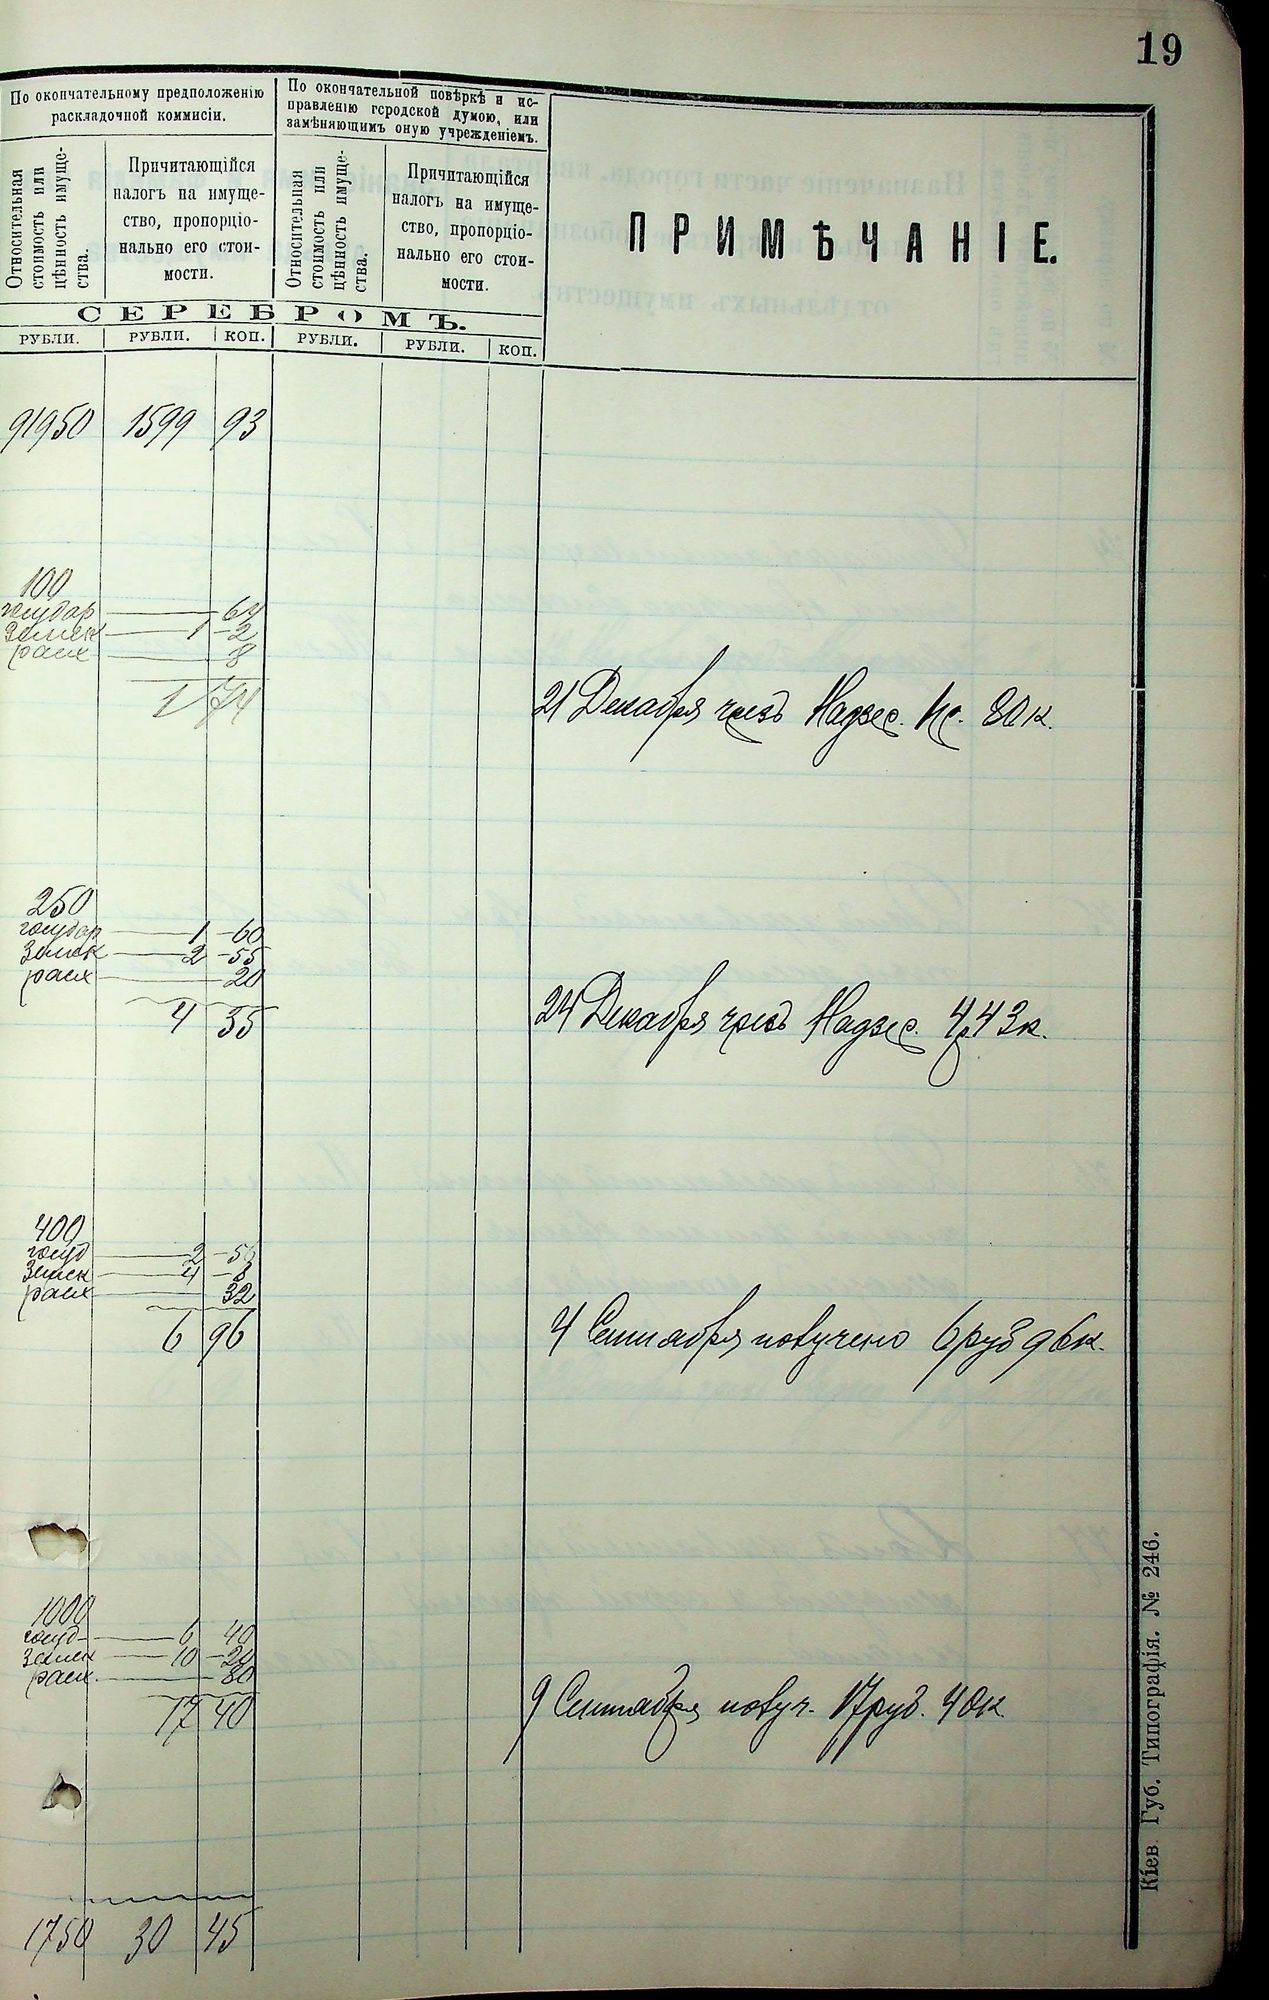 19
По окончательному предположенію
раскладочной коммисіи.
По окончательной повѣркѣ и ис-
правленію городской думою, или
замѣняющимъ оную учрежденіемъ.
Относительная
стоимость или
цѣнность имуще-
ства.
Причитающійся
налогъ на имуще-
ство, пропорціо-
нально его стои-
мости.
Относительная
стоимость или
цѣнность имуще-
ства.
Причитающійся
налогъ на имуще-
ство, пропорціо-
нально его стои-
мости.
ПРИМѢЧАНІЕ.
СЕРЕБРОМЪ.
РУБЛИ. РУБЛИ. КОП. РУБЛИ. РУБЛИ. КОП.
91950 1599 93
100
государ 64
Земск 1 - 2
расх 8
1 74
21 Декабря чрезъ Надзес. 1р. 80 к.
250
государ 1 - 60
Земск 2 - 55
расх 20
4 35
24 Декабря чрезъ Надзес. 4р 43к.
400
госуд 2 - 56
Земск 4 - 8
расх 32
6 96
4 Сентября получено 6 руб 96к.
1000
госуд 6 40
Земск 10 - 20
расх 80
17 40
9 Сентября получ. 17руб. 40к.
1750 30 45
Кіев. Губ. Типографія. № 246.